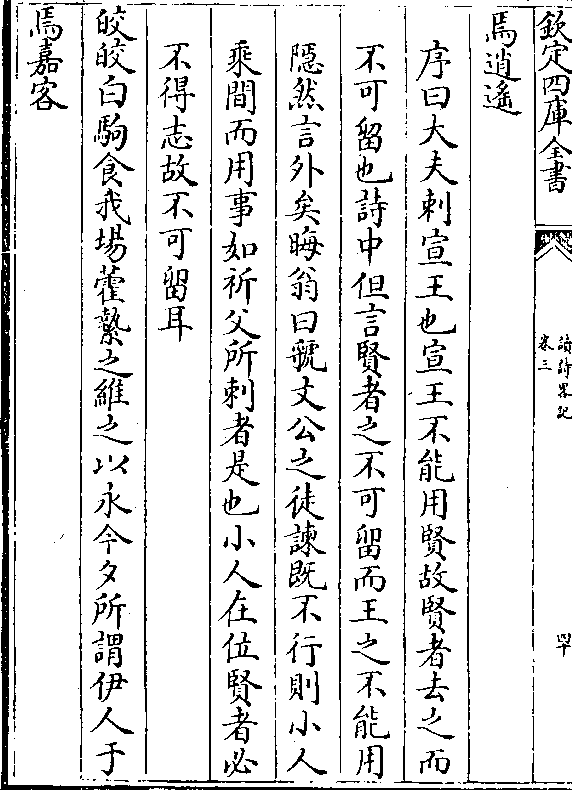 欽定四庫全書
讀詩畧記
卷三
焉逍遙
序曰大夫刺宣王也宣王不能用賢故賢者去之而
不可留也詩中但言賢者之不可留而王之不能用
隱然言外矣晦翁曰虢文公之徒諫既不行則小人
乘間而用事如祈父所刺者是也小人在位賢者必
不得志故不可留耳
皎皎白駒食我場藿縶之維之以永今夕所謂伊人于
焉嘉客